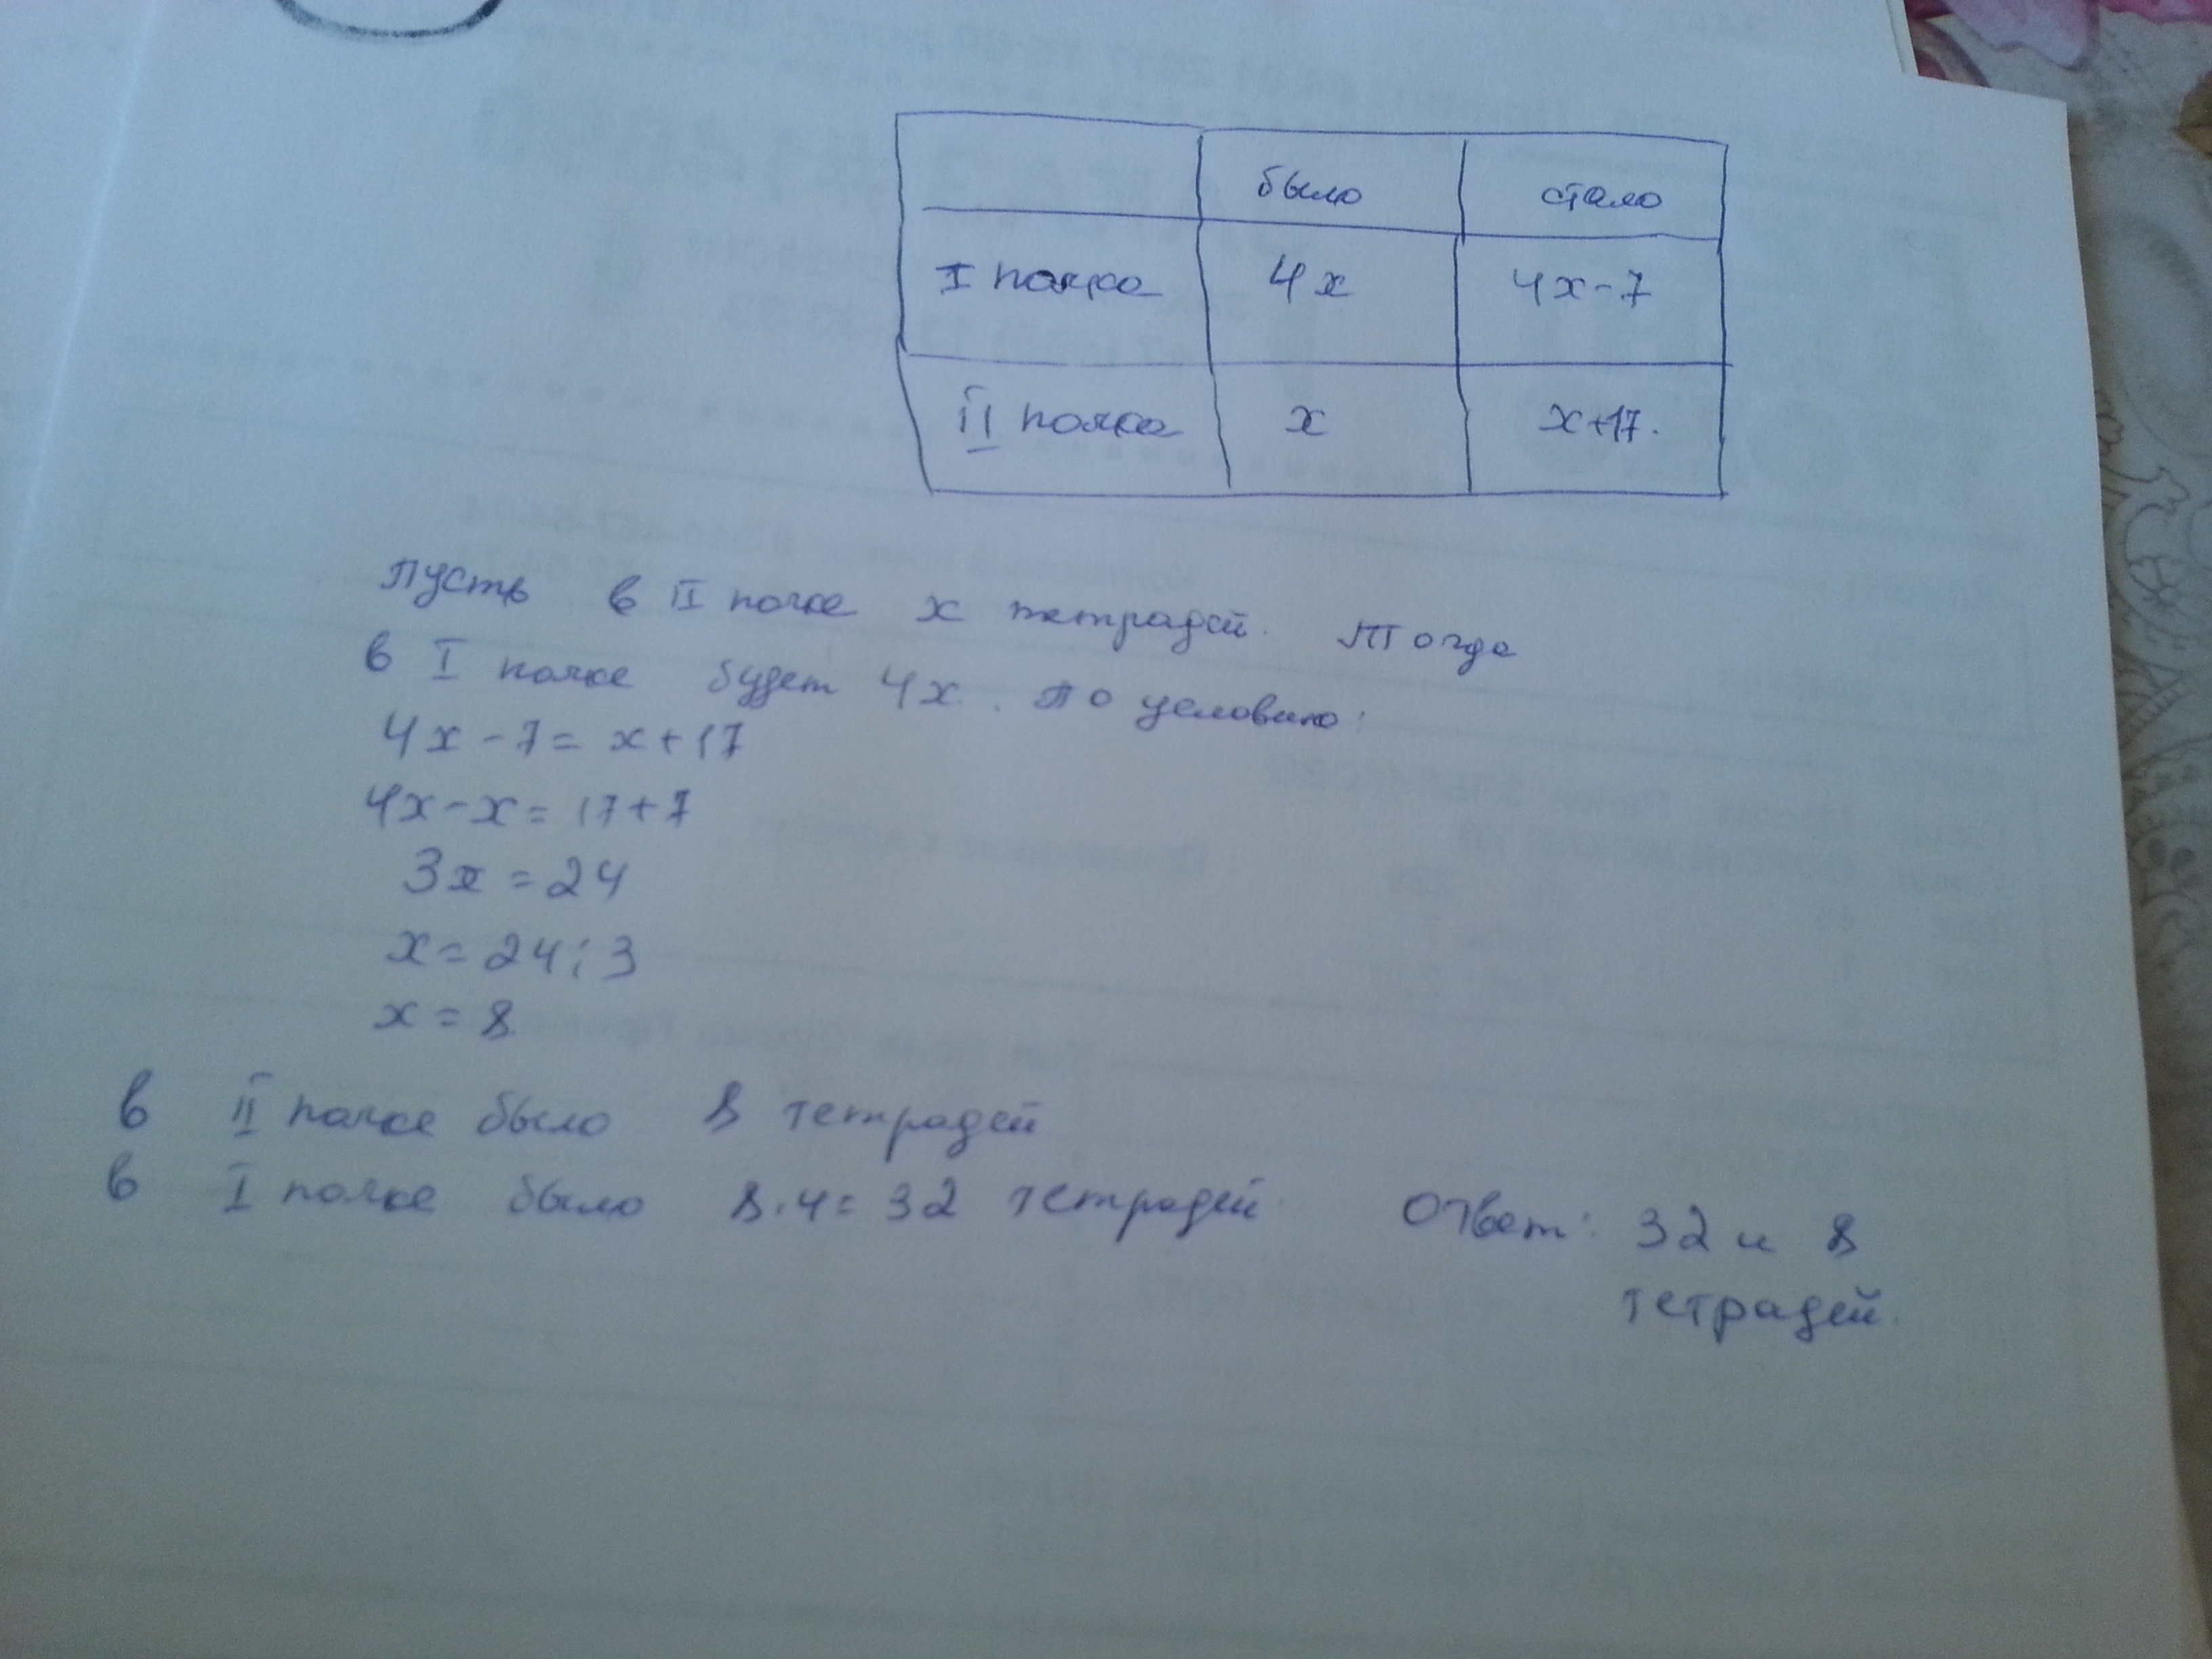 было стало
I полка 4x 4x-7
II полка x x+17.
Пусть в II полке x тетрадей. Тогда
в I полке будет 4x. По условию:
4x-7= x+17
4x-x= 17+7
3x = 24
x= 24:3
x = 8
в II полке было 8 тетрадей
в I полке было 8·4= 32 тетрадей. Ответ: 32 и 8
тетрадей.